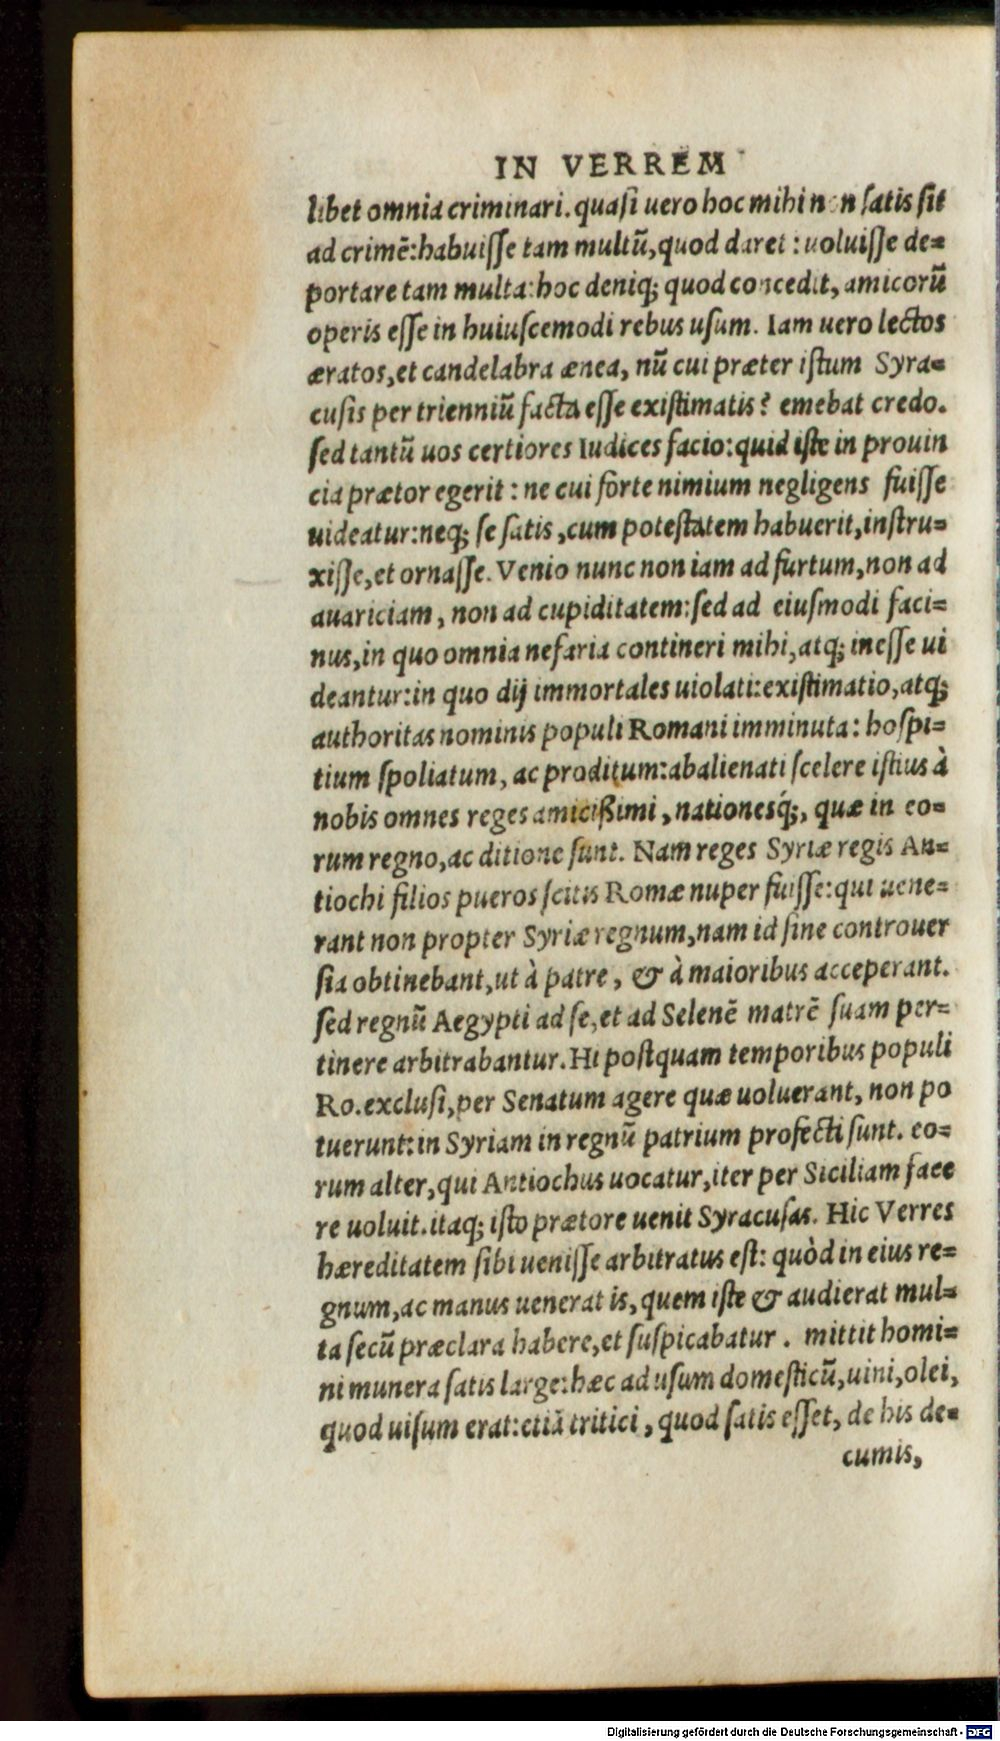 IN VERREM
libet omnia criminari. quaſi uero hoc mihi non ſatis ſit
ad crimē: habuiſſe tam multū, quod daret: uoluiſſe de=
portare tam multa: hoc deniq; quod concedit, amicorū
operis eſſe in huiuſcemodi rebus uſum. Iam uero lectos
æratos, et candelabra ænea, nū cui præter iſtum Syra=
cuſis per trienniū facta eſſe exiſtimatis? emebat credo.
ſed tantū uos certiores Iudices facio: quid iſte in prouin
cia prætor egerit: ne cui forte nimium negligens fuiſſe
uideatur: neq; ſe ſatis, cum poteſtatem habuerit, inſtru=
xiſſe, et ornaſſe. Venio nunc non iam ad furtum, non ad
auariciam, non ad cupiditatem: ſed ad eiuſmodi faci=
nus, in quo omnia nefaria contineri mihi, atq; ineſſe ui
deantur: in quo dij immortales uiolati: exiſtimatio, atq;
authoritas nominis populi Romani imminuta: hoſpi=
tium ſpoliatum, ac proditum: abalienati ſcelere iſtius à
nobis omnes reges amicißimi, nationesq́;, quæ in eo=
rum regno, ac ditione ſunt. Nam reges Syriæ regis An=
tiochi filios pueros ſcitis Romæ nuper fuiſſe: qui uene=
rant non propter Syriæ regnum, nam id ſine controuer
ſia obtinebant, ut à patre, & à maioribus acceperant.
ſed regnū Aegypti ad ſe, et ad Selenē matrē ſuam per=
tinere arbitrabantur. Hi poſtquam temporibus populi
Ro. excluſi, per Senatum agere quæ uoluerant, non po
tuerunt: in Syriam in regnū patrium profecti ſunt. eo=
rum alter, qui Antiochus uocatur, iter per Siciliam face
re uoluit. itaq; iſto prætore uenit Syracuſas. Hic Verres
hæreditatem ſibi ueniſſe arbitratus eſt: quòd in eius re=
gnum, ac manus uenerat is, quem iſte & audierat mul=
ta ſecū præclara habere, et ſuſpicabatur. mittit homi=
ni munera ſatis large: hæc ad uſum domeſticū, uini, olei,
quod uiſum erat: etiā tritici, quod ſatis eſſet, de his de=
cumis,
Digitalisierung gefördert durch die Deutsche Forschungsgemeinschaft - DFG